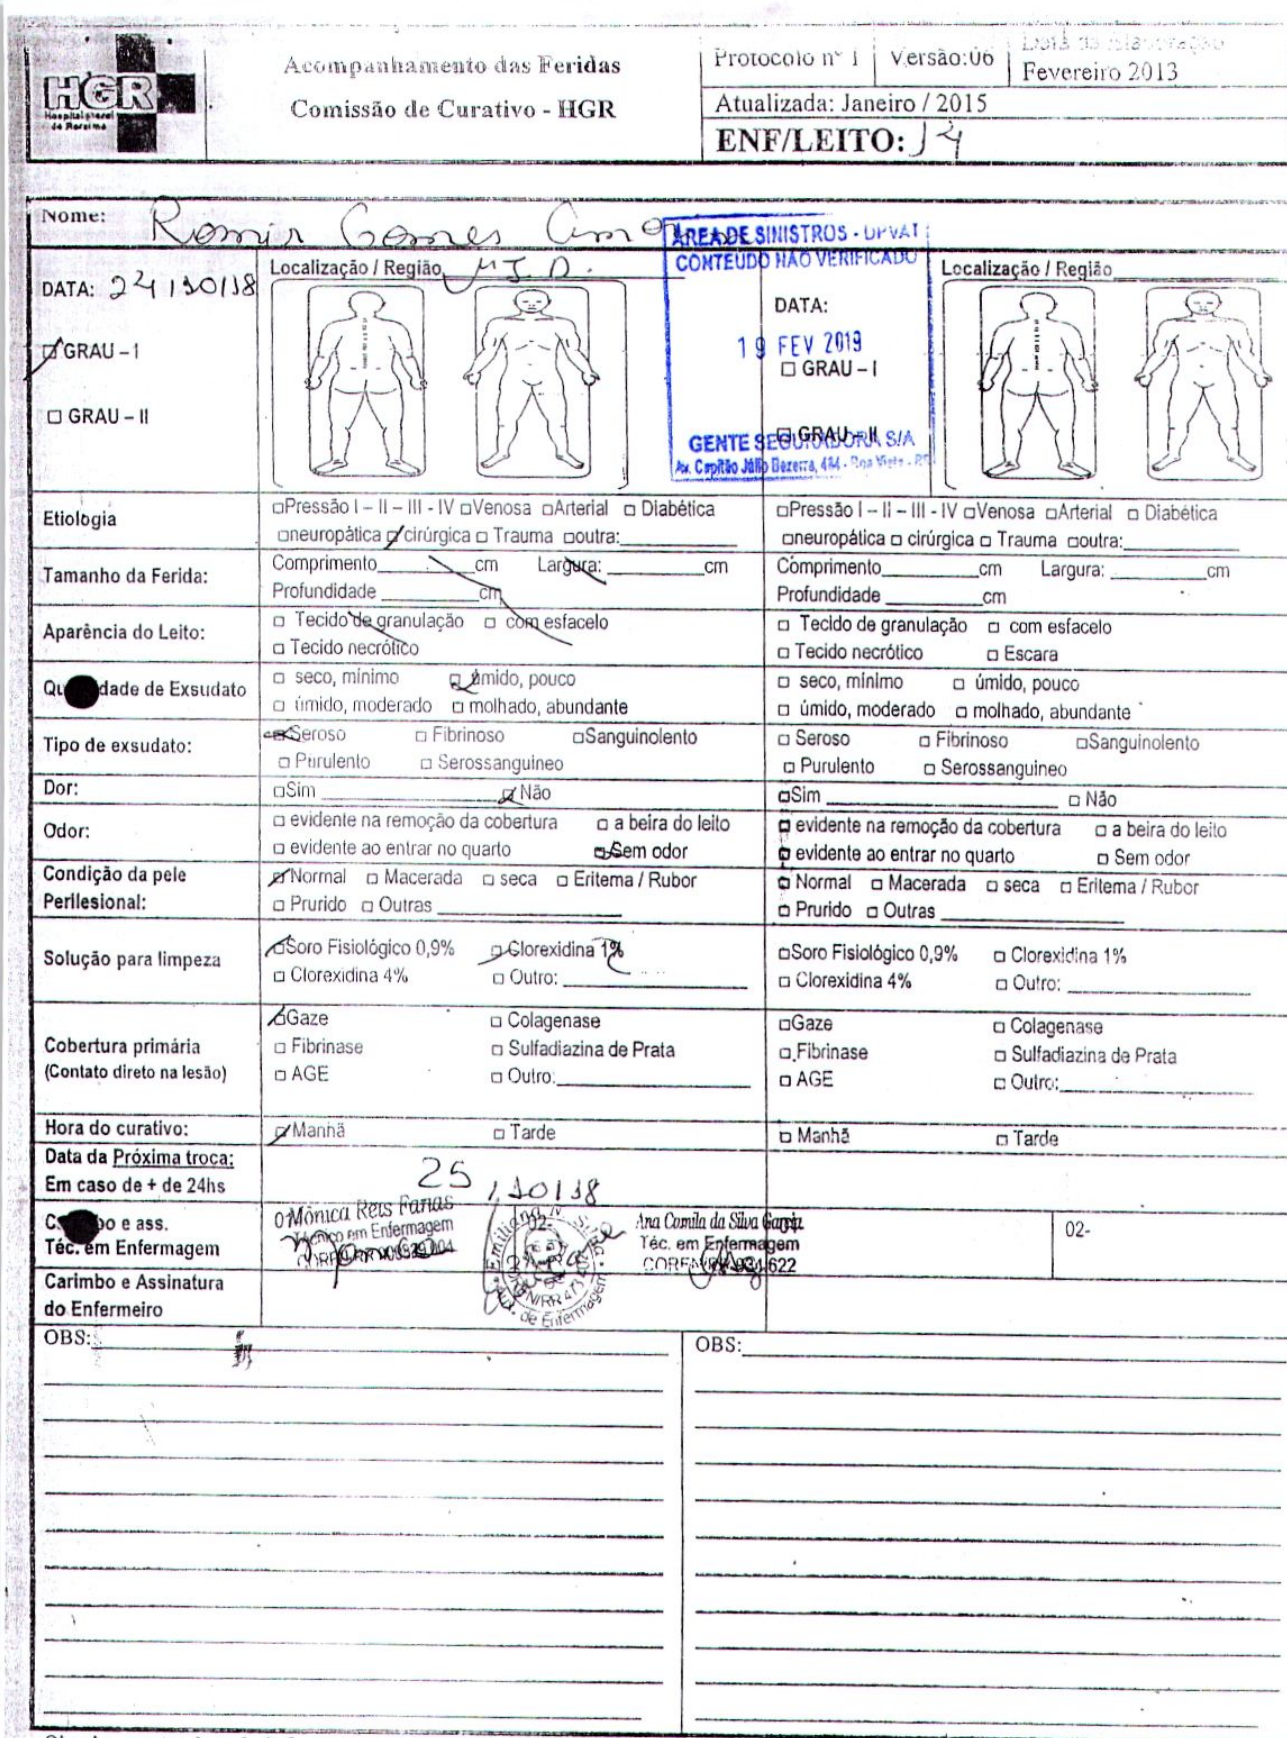 HGR
Hospital Geral
de Roraima
Acompanhamento das Feridas
Comissão de Curativo - HGR
Protocolo nº 1
Versão:06
Data da Elaboração
Fevereiro 2013
Atualizada: Janeiro / 2015
ENF/LEITO: 14
Nome: Gomes
ÁREA DE SINISTROS - DPVAT
CONTEÚDO NÃO VERIFICADO
19 FEV 2019
GENTE SEGURADORA S/A
Av. Capitão Júlio Bezerra, 484 - Boa Vista - RR
DATA: 24/10/18
□ GRAU – I
□ GRAU – II
Localização / Região M I D.
DATA:
□ GRAU – I
□ GRAU – II
Localização / Região
Etiologia
□Pressão I – II – III - IV □Venosa □Arterial □ Diabética
□neuropática □ cirúrgica □ Trauma □outra:
□Pressão I – II – III - IV □Venosa □Arterial □ Diabética
□neuropática □ cirúrgica □ Trauma □outra:
Tamanho da Ferida:
Comprimento cm Largura: cm
Profundidade cm
Comprimento cm Largura: cm
Profundidade cm
Aparência do Leito:
□ Tecido de granulação □ com esfacelo
□ Tecido necrótico
□ Tecido de granulação □ com esfacelo
□ Tecido necrótico □ Escara
Qu dade de Exsudato
□ seco, mínimo □ úmido, pouco
□ úmido, moderado □ molhado, abundante
□ seco, mínimo □ úmido, pouco
□ úmido, moderado □ molhado, abundante
Tipo de exsudato:
□ Seroso □ Fibrinoso □Sanguinolento
□ Purulento □ Serossanguineo
□ Seroso □ Fibrinoso □Sanguinolento
□ Purulento □ Serossanguineo
Dor:
□Sim □ Não
□Sim □ Não
Odor:
□ evidente na remoção da cobertura □ a beira do leito
□ evidente ao entrar no quarto □ Sem odor
□ evidente na remoção da cobertura □ a beira do leito
□ evidente ao entrar no quarto □ Sem odor
Condição da pele
Perilesional:
□ Normal □ Macerada □ seca □ Eritema / Rubor
□ Prurido □ Outras
□ Normal □ Macerada □ seca □ Eritema / Rubor
□ Prurido □ Outras
Solução para limpeza
□Soro Fisiológico 0,9% □ Clorexidina 1%
□ Clorexidina 4% □ Outro:
□Soro Fisiológico 0,9% □ Clorexidina 1%
□ Clorexidina 4% □ Outro:
Cobertura primária
(Contato direto na lesão)
□Gaze □ Colagenase
□ Fibrinase □ Sulfadiazina de Prata
□ AGE □ Outro:
□Gaze □ Colagenase
□ Fibrinase □ Sulfadiazina de Prata
□ AGE □ Outro:
Hora do curativo:
□ Manhã □ Tarde
□ Manhã □ Tarde
Data da Próxima troca:
Em caso de + de 24hs
25/10/18
C bo e ass.
Téc. em Enfermagem
Mônica Reis Farias
Técnico em Enfermagem
02-
de Enfermagem
Ana Camila da Silva Garcia
Téc. em Enfermagem
02-
Carimbo e Assinatura
do Enfermeiro
OBS:
OBS: